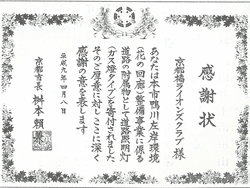 感謝状
京都橘ライオンズクラブ 様
あなたは本市鴨川左岸環境
(花の回廊)整備事業に係る
道路の附属物として道路照明灯
(ガス燈タイプ)を寄付されました
そのご厚意に対しここに深く
感謝の意を表します
平成九年四月八日
京都市長 桝本賴兼